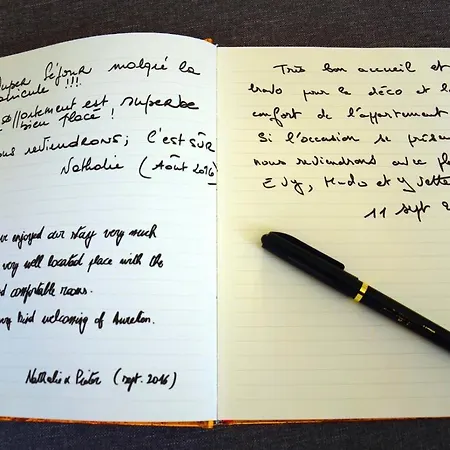 Super Séjour malgré la
canicule !!!
L'Appartement est superbe
bien placé !
Nous reviendrons, c'est sûr
Nathalie (Août 2016)
enjoyed our stay very much
very well located place with the
comfortable rooms.
kind welcoming of Aurelien.
Nathalie & Pieter (sept. 2016)
Très bon accueil et
bravo pour la déco et le
confort de l'appartement
Si l'occasion se présen
nous reviendrons avec pl
Evy, Hugo et Yvette
11 sept 2